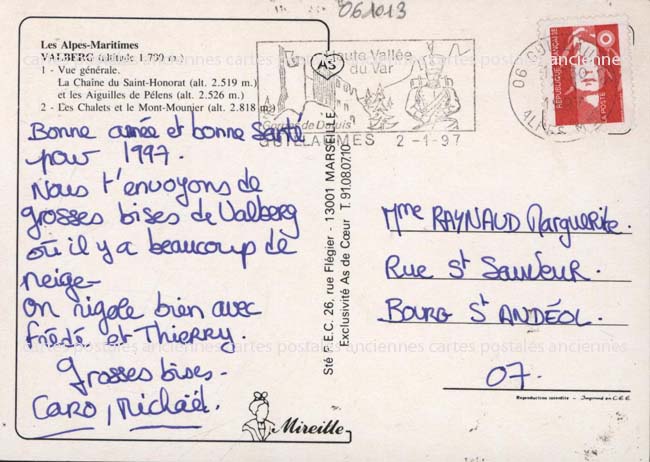 061013
Les Alpes-Maritimes
VALBERG (altitude 1.700 m.)
1 - Vue générale.
La Chaîne du Saint-Honorat (alt. 2.519 m.)
et les Aiguilles de Pélens (alt. 2.526 m.)
2 - Les Chalets et le Mont-Mounier (alt. 2.818 m.)
Bonne année et bonne santé
pour 1997.
Nous t'envoyons de
grosses bises de Valberg
où il y a beaucoup de
neige
On rigole bien avec
Frédé et Thierry.
Grosses bises.
CARO, Mickaël.
Mireille
AS
Sté P.E.C. 26, rue Flégier - 13001 MARSEILLE
Exclusivité As de Cœur T. 91.08.07.10
Haute Vallée
du Var
Gorges de Daluis
GUILLAUMES 2-1-97
06
ALPES M
REPUBLIQUE FRANÇAISE
LA POSTE
Mme RAYNAUD Marguerite.
Rue St Sauveur.
BOURG St ANDÉOL.
07.
Reproduction interdite - Imprimé en C.E.E.
cartes postales anciennes cartes postales anciennes cartes postales anciennes